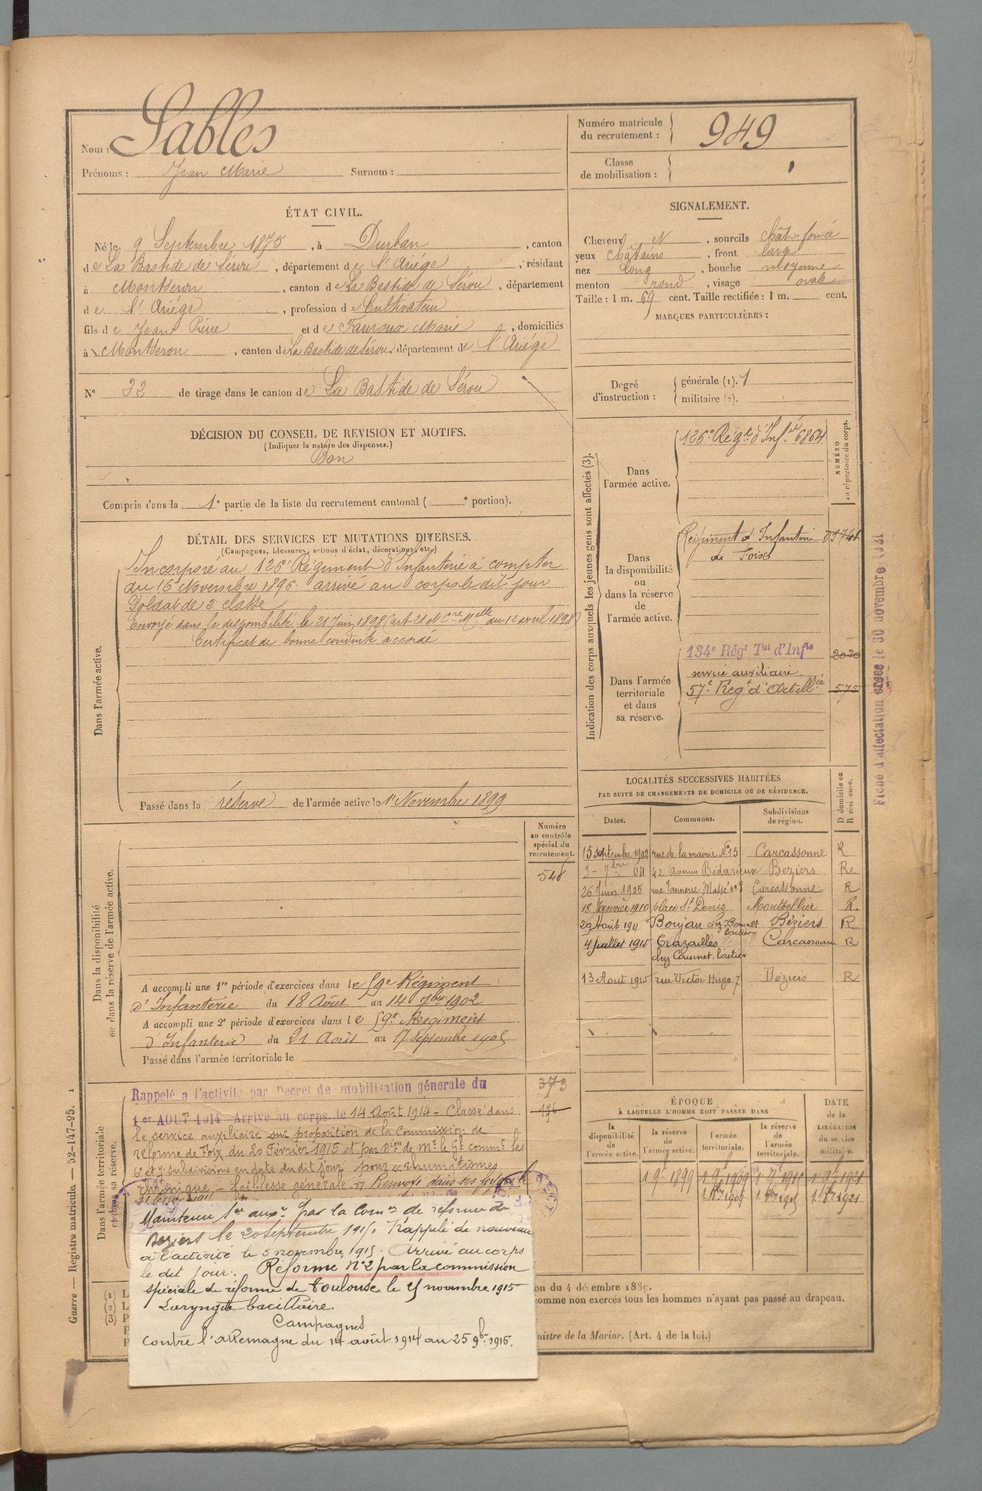 Nom : Sables
Prénoms : Jean Marie Surnom :
Numéro matricule du recrutement : 949
Classe de mobilisation :
ÉTAT CIVIL.
Né le 9 Septembre 1875, à Durban, canton
de La Bastide de Sérou, département de l'Ariége, résidant
à Montseron, canton de La Bastide de Sérou, département
de l'Ariége, profession de Cultivateur
fils de Jean Pierre et de Fauroux Marie, domiciliés
à Montseron, canton de La Bastide de Sérou, département de l'Ariége
N° 22 de tirage dans le canton de La Bastide de Sérou
SIGNALEMENT.
Cheveux N, sourcils chât. foncé
yeux châtains, front large
nez long, bouche moyenne
menton rond, visage ovale
Taille : 1 m. 69 cent. Taille rectifiée : 1 m. cent.
MARQUES PARTICULIÈRES :
Degré d'instruction : générale (1). 1
militaire (2).
DÉCISION DU CONSEIL DE REVISION ET MOTIFS.
(Indiquer la nature des dispenses.)
Bon
Compris dans la 1e partie de la liste du recrutement cantonal ( e portion).
DÉTAIL DES SERVICES ET MUTATIONS DIVERSES.
(Campagnes, blessures, actions d'éclat, décorations, etc.)
Dans l'armée active.
Incorporé au 126e Régiment d'Infanterie à compter
du 16 Novembre 1896. arrivé au corps le dit jour
Soldat de 2e classe
Envoyé dans la disponibilité le 21 Juin 1898 (art. 21 et Cre Mlle du 1er avril 1898)
Certificat de bonne conduite accordé
Passé dans la réserve de l'armée active le 1er Novembre 1899
Indication des corps auxquels les jeunes gens sont affectés (3).
NUMÉRO au répertoire du corps.
Dans l'armée active.
126e Régt d'Infie 6864
Dans la disponibilité ou dans la réserve de l'armée active.
Régiment d'Infanterie
de Foix
Dans l'armée territoriale et dans sa réserve.
134e Régt Tal d'Infie 2020
service auxiliaire
57e Régt d'Artillie 575
Fiche d'affectation créée le 30 novembre
LOCALITÉS SUCCESSIVES HABITÉES
PAR SUITE DE CHANGEMENTS DE DOMICILE OU DE RÉSIDENCE.
Dates. Communes. Subdivisions de région. D domicile ou R résidence.
15 septembre 1902 rue de la mairie N° 15 Carcassonne R
42 avenue Bédarieux Beziers R
26 Juin 1905 Carcassonne R
18 Janvier 1910 place St Denis Montpellier R
29 Août 1911 Boujan chez Bonnet Béziers R
4 Juillet 1915 Carcassonne R
13 Aout 1915 rue Victor Hugo 7 Béziers R
Dans la disponibilité ou dans la réserve de l'armée active.
Numéro au contrôle spécial du recrutement.
548
A accompli une 1re période d'exercices dans le 59e Régiment
d'Infanterie du 18 Août au 14 7bre 1902
A accompli une 2e période d'exercices dans le 59e Régiment
d'Infanterie du 21 Août au 17 Septembre 1905
Passé dans l'armée territoriale le
Dans l'armée territoriale et dans sa réserve.
373
Rappelé a l'activité par Decret de mobilisation génerale du
1er AOUT 1914 Arrivé au corps le 14 Août 1914 – Classé dans
le service auxiliaire sur proposition de la Commission de
réforme de Foix du 20 Février 1915 et par don de Mr le Gl commt les
6e et 7e subdivisions en date du dit jour pour « rhumatismes
chronique – faiblesse générale. » Renvoyé dans ses foyers le
Maintenu Ser auxre par la Comon de réforme de
Béziers le 20 septembre 1915. Rappelé de nouveau
à l'activité le 5 novembre 1915. Arrivé au corps
le dit jour. Réformé N° 2 par la commission
spéciale de réforme de Toulouse le 25 novembre 1915
Laryngite bacillaire.
Campagnes
Contre l'allemagne du 14 août 1914 au 25 9bre 1915.
ÉPOQUE
A LAQUELLE L'HOMME DOIT PASSER DANS
DATE de la LIBÉRATION du service militaire.
la disponibilité de l'armée active. la réserve de l'armée active. l'armée territoriale. la réserve de l'armée territoriale.
1 9e 1899
on du 4 décembre 1889.
comme non exercés tous les hommes n'ayant pas passé au drapeau.
nistre de la Marine. (Art. 4 de la loi.)
Guerre — Registre matricule — 52-147-95.